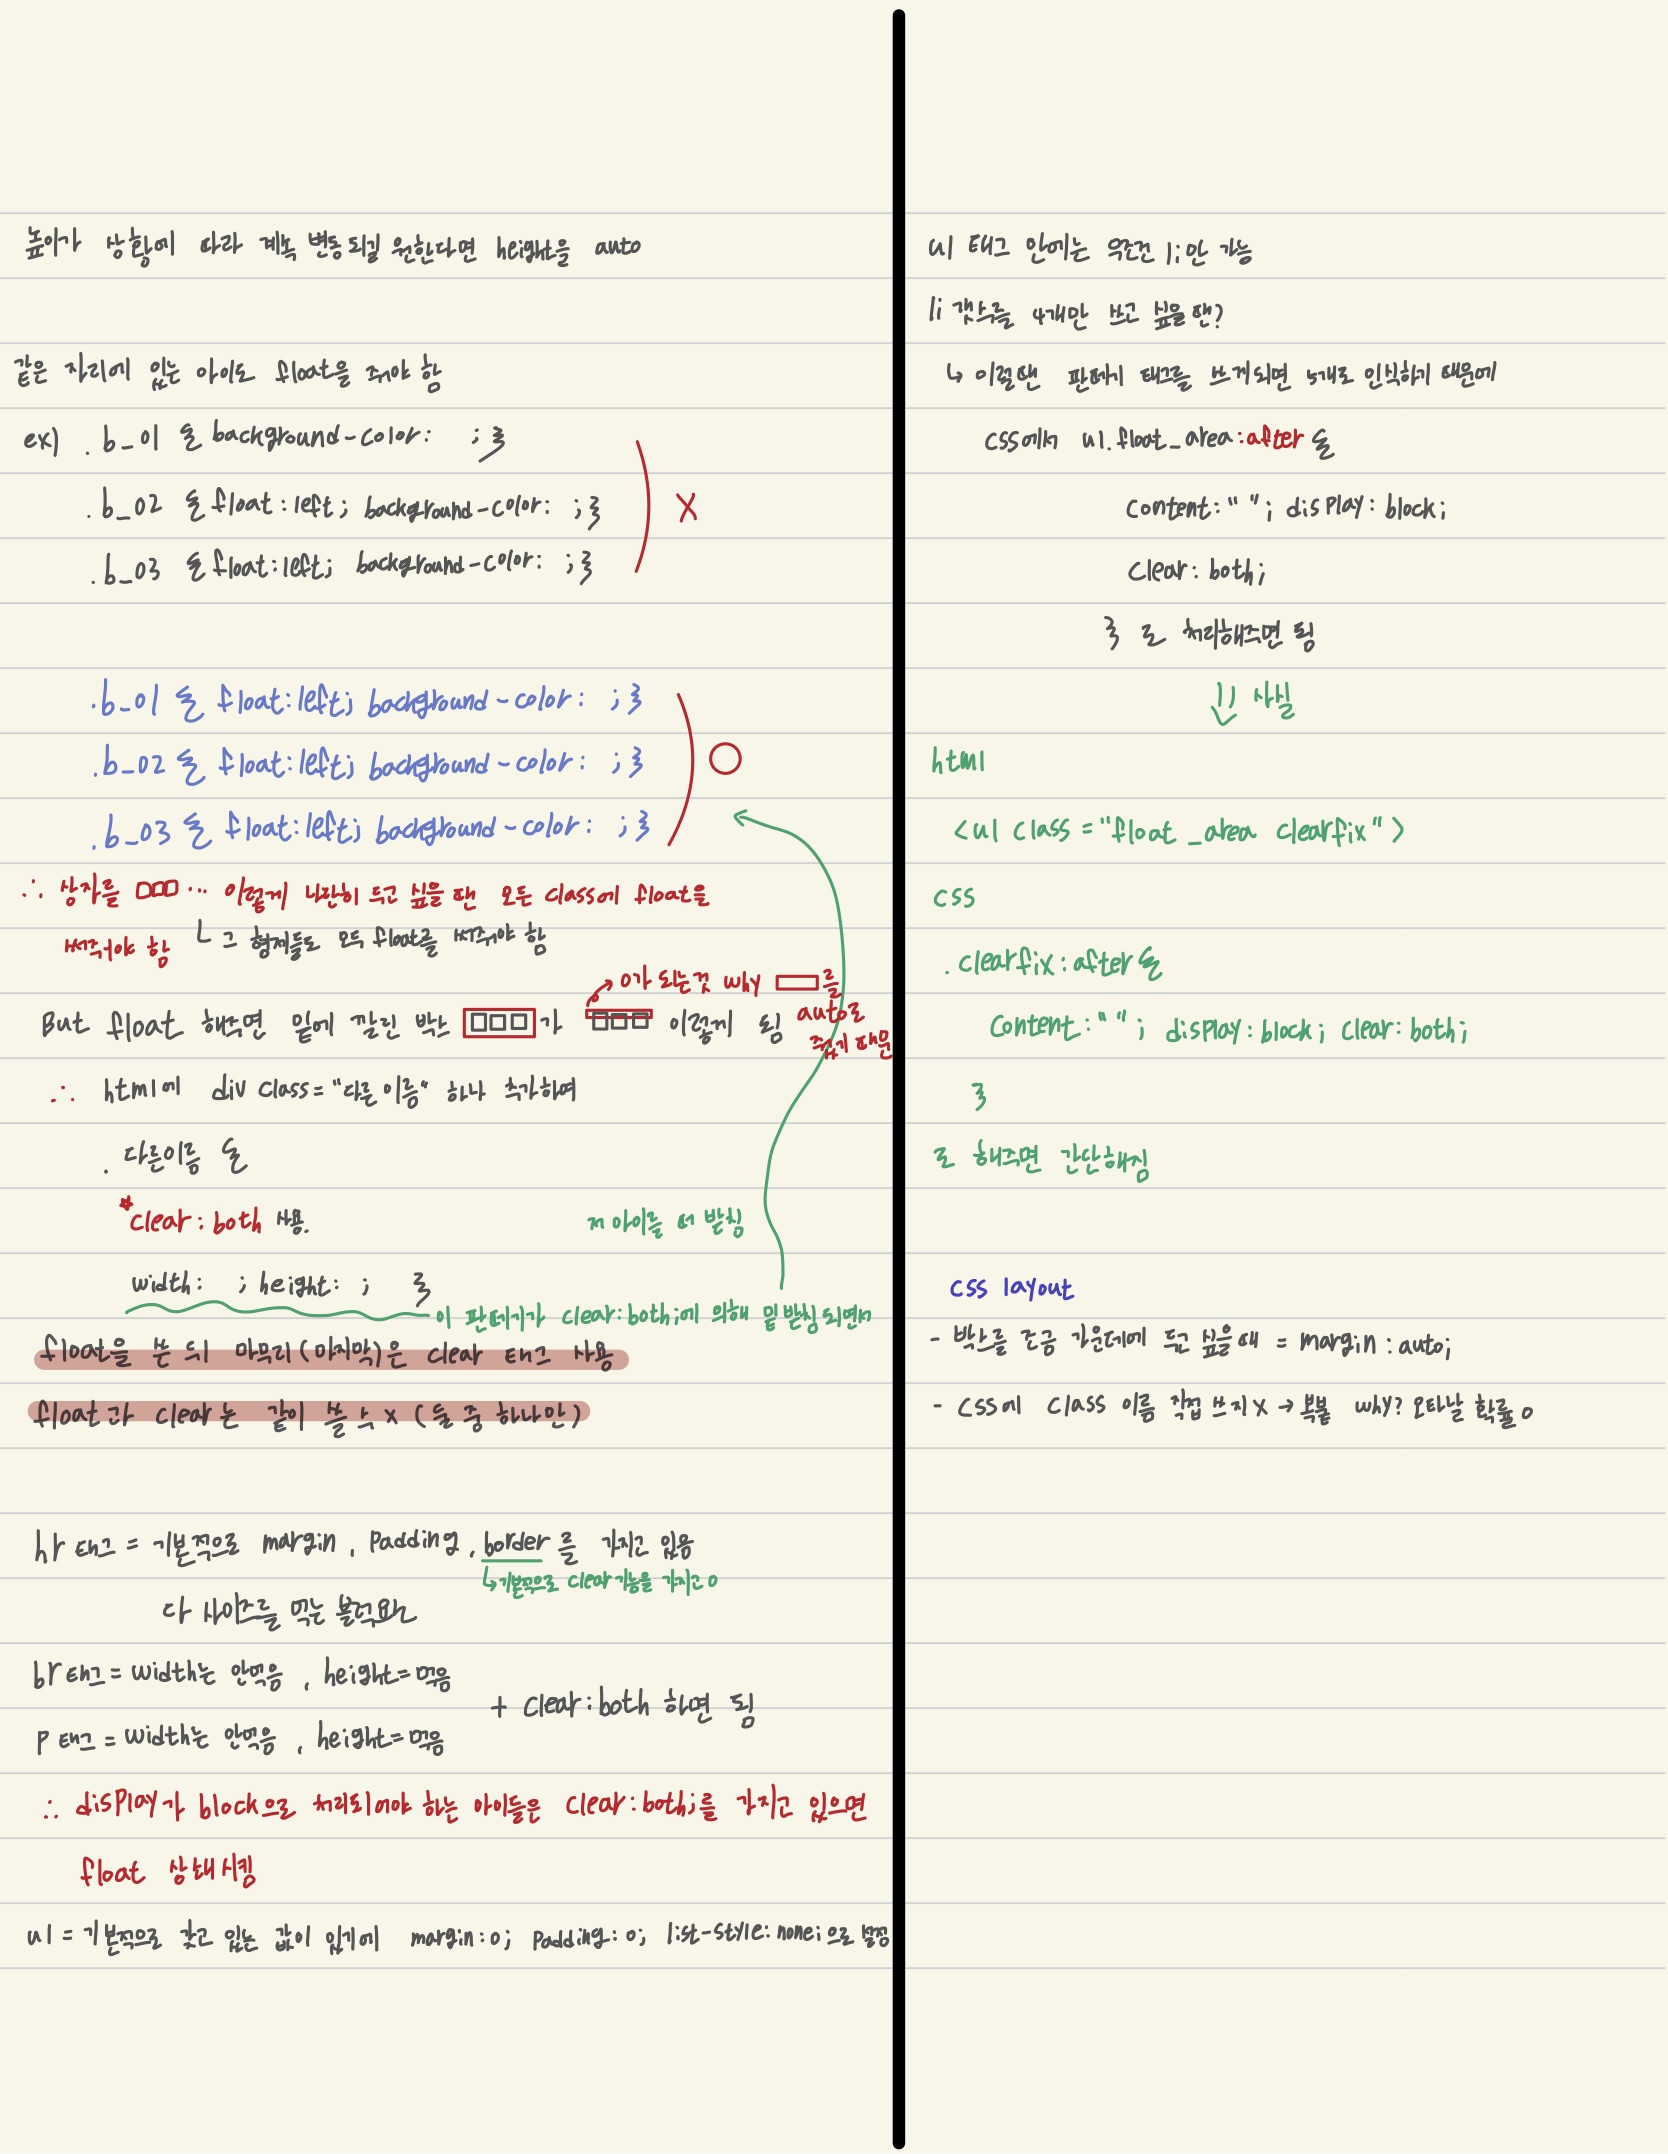 높이가 상황에 따라 계속 변동되길 원한다면 height을 auto
같은 자리에 있는 아이도 float을 줘야 함
ex) .b_01 { background-color: ; }
.b_02 { float:left; background-color: ; }
.b_03 { float:left; background-color: ; }
X
.b_01 { float:left; background-color: ; }
.b_02 { float:left; background-color: ; }
.b_03 { float:left; background-color: ; }
○
∴ 상자를 □□□… 이렇게 나란히 두고 싶을 땐 모든 class에 float을
써주어야 함
└ 그 형제들도 모두 float를 써줘야 함
→ 0가 되는것 why ▭를
auto로
줬기 때문
But float 해주면 밑에 깔린 박스 가 이렇게 됨
∴ html에 div class="다른이름" 하나 추가하여
. 다른이름 {
*clear: both 사용.
저 아이를 떠 받침
width: ; height: ; }
이 판떼기가 clear:both;에 의해 밑 받침 되면서
float을 쓴 뒤 마무리(마지막)은 clear 태그 사용
float과 clear는 같이 쓸 수 x (둘 중 하나만)
hr 태그 = 기본적으로 margin, padding, border를 가지고 있음
↳기본적으로 clear기능을 가지고 o
다 사이즈를 먹는 블럭요소
br 태그 = width는 안먹음, height=먹음
+ clear:both 하면 됨
p 태그 = width는 안먹음, height=먹음
∴ display가 block으로 처리되어야 하는 아이들은 clear:both;를 가지고 있으면
float 상쇄시킴
ul = 기본적으로 갖고 있는 값이 있기에 margin:0; padding:0; list-style:none;으로 설정
ul 태그 안에는 무조건 li만 가능
li 갯수를 4개만 쓰고 싶을 땐?
↳ 이럴땐 판떼기 태그를 쓰게되면 5개로 인식하기 때문에
css에서 ul.float_area:after {
content:" "; display: block;
clear: both;
} 로 처리해주면 됨
↓ 사실
html
<ul class="float_area clearfix">
css
.clearfix:after {
content:" "; display:block; clear:both;
}
로 해주면 간단해짐
css layout
- 박스를 조금 가운데에 두고 싶을때 = margin:auto;
- css에 class 이름 직접 쓰지 X → 복붙 why? 오타날 확률 o